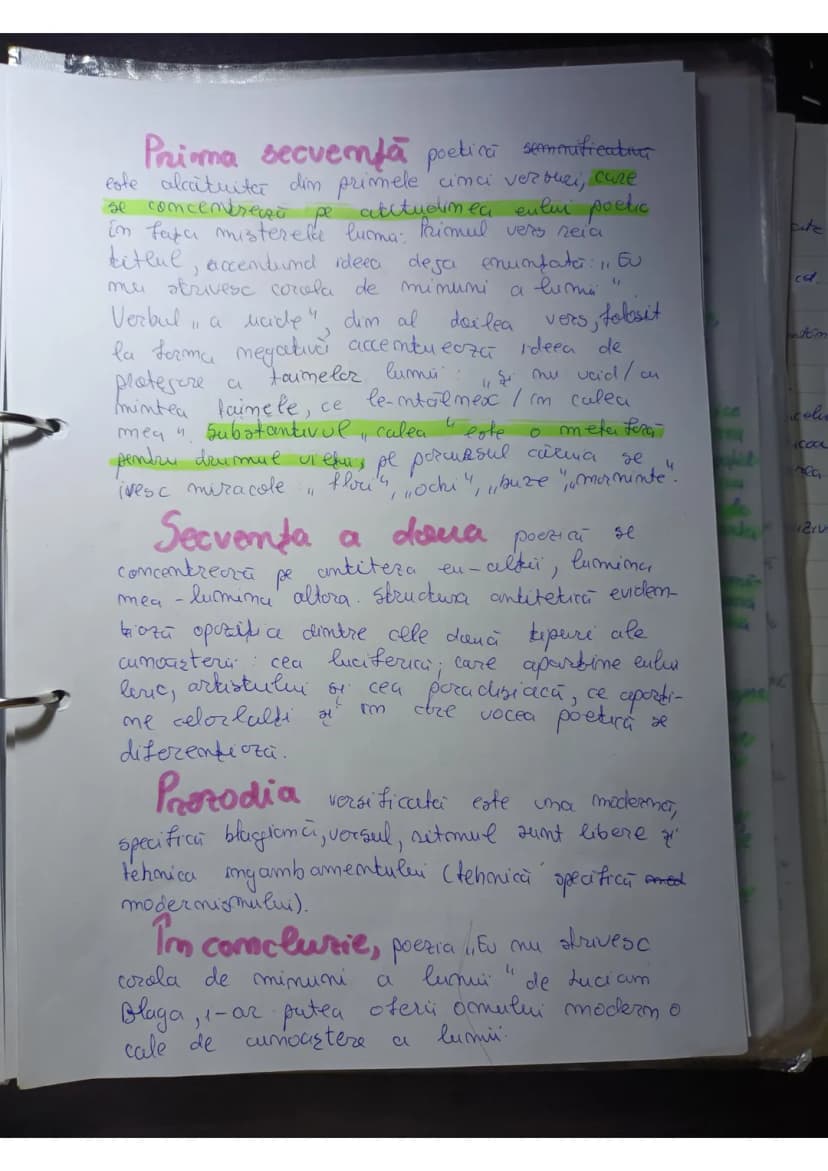 Prima secvență poetică semnificativă
este alcătuită din primele cinci versuri, care
se concentrează pe atitudinea eului poetic
în fața misterelor lumii. Primul vers reia
titlul, accentuând ideea deja enunțată: „Eu
nu strivesc corola de minuni a lumii".
Verbul „a ucide", din al doilea vers, folosit
la forma negativă accentuează ideea de
protejare a tainelor lumii: „și nu ucid/cu
mintea tainele, ce le-ntâlnesc/în calea
mea". Substantivul „calea" este o metaforă
pentru drumul vieții, pe parcursul căruia se
ivesc miracole: „flori", „ochi", „buze", „morminte".
Secvența a doua poetică se
concentrează pe antiteza eu-alții, lumina
mea - lumina altora. Structura antitetică eviden-
țiază opoziția dintre cele două tipuri ale
cunoașterii: cea luciferică, care aparține eului
liric, artistului și cea paradisiacă, ce aparți-
ne celorlalți și în care vocea poetică se
diferențiază.
Prozodia versificată este una modernă,
specifică blagiană, versul, ritmul sunt libere și
tehnica ingambamentului (tehnică specifică med
modernismului).
În concluzie, poezia „Eu nu strivesc
corola de minuni a lumii" de Lucian
Blaga, i-ar putea oferii omului modern o
cale de cunoaștere a lumii.